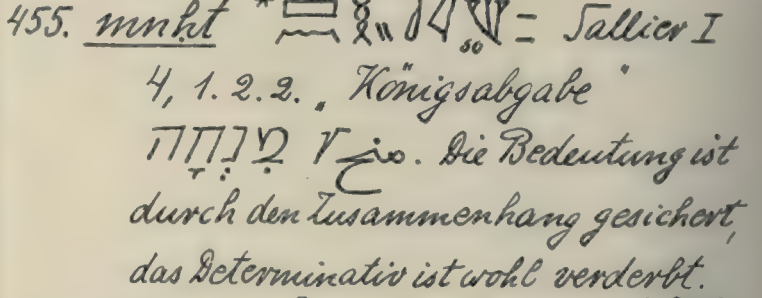 455. mnḥt * = Sallier I
4, 1. 2. 2. „Königsabgabe"
מִנְחָה √منح. Die Bedeutung ist
durch den Zusammenhang gesichert,
das Determinativ ist wohl verderbt.